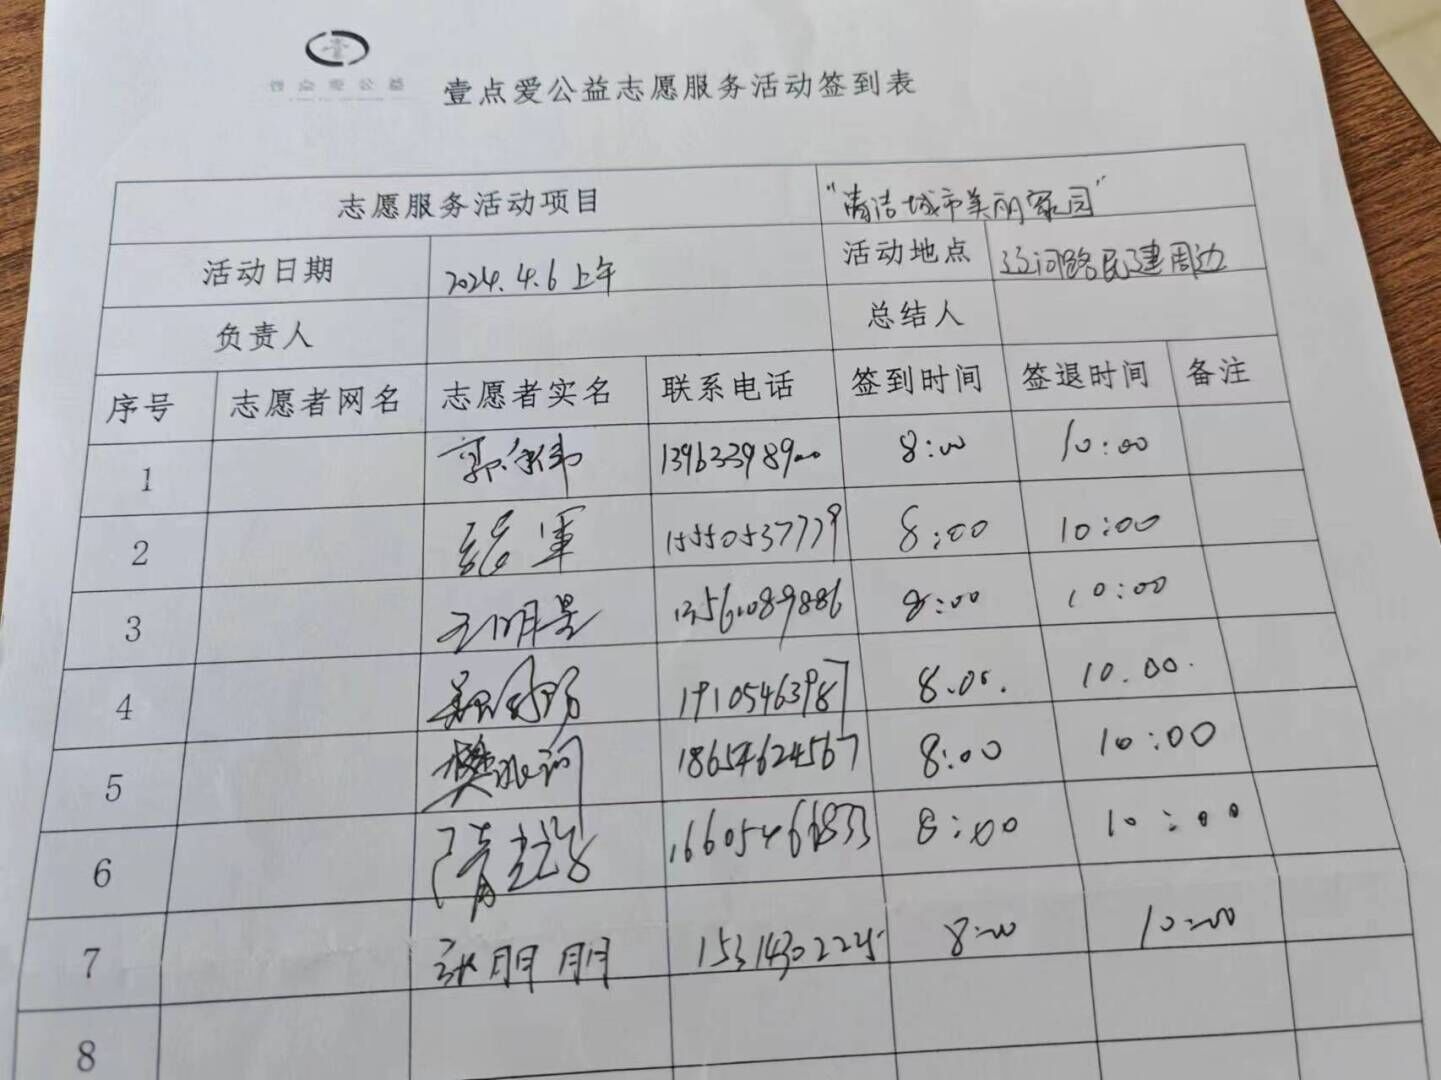 壹点爱公益
壹点爱公益志愿服务活动签到表
志愿服务活动项目 "清洁城市美丽家园"
活动日期 2024.4.6上午 活动地点 辽河路民建周边
负责人 总结人
序号 志愿者网名 志愿者实名 联系电话 签到时间 签退时间 备注
1 8:00 10:00
2 15550537779 8:00 10:00
3 王明昙 13561089886 8:00 10:00
4 19105463987 8.00. 10.00.
5 樊 18654624567 8:00 10:00
6 隋 16605466833 8:00 10:00
7 张朋朋 15314302245 8:00 10:00
8